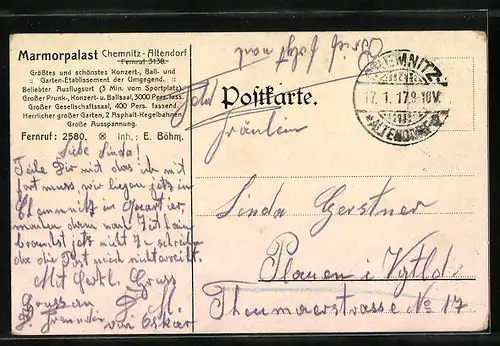 Marmorpalast Chemnitz-Altendorf
Fernruf 3138.
Größtes und schönstes Konzert-, Ball- und
Garten-Etablissement der Umgegend.
Beliebter Ausflugsort (3 Min. vom Sportplatz)
Großer Prunk-, Konzert- u. Ballsaal, 3000 Pers. fass.
Großer Gesellschaftssaal, 400 Pers. fassend.
Herrlicher großer Garten, 2 Asphalt-Kegelbahnen
Große Ausspannung.
Fernruf: 2580. Inh.: E. Böhm.
Liebe Linda!
Teile Dir mit das ich mit
fort muss, wir liegen jetzt in
Chemnitz in Quartier,
brauchst jetzt nicht zu schreiben
da die Post mich nicht
Mit Herzl. Gruss
Gruss an
von Oskar
Brief folgt noch
CHEMNITZ-
17. 1. 17. 9-10V.
ALTENDORF
Postkarte.
Feld
Fräulein
Linda Gerstner
Plauen i Vgtld.
Theumaerstrasse No 17